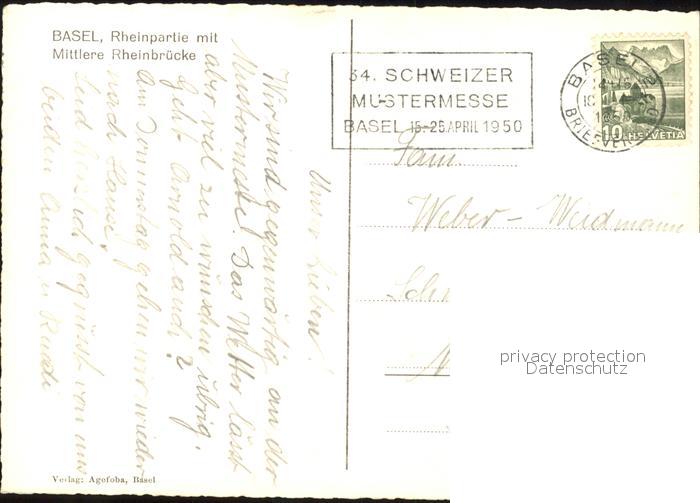 BASEL, Rheinpartie mit
Mittlere Rheinbrücke
Unser Lieben!
Wir sind gegenwärtig an der
Mustermesse. Das Wetter lässt
aber viel zu wünschen übrig.
Geht Arnold auch?
Am Donnerstag gehen wir wieder
nach Hause.
Seid herzlich gegrüsst von uns
beiden Anna u Ruedi
Verlag: Agofoba, Basel
34. SCHWEIZER
MUSTERMESSE
BASEL 15-25 APRIL 1950
BASEL 2
BRIEFVERSAND
10 HELVETIA
Fam.
Weber - Weidmann
Sch
privacy protection
Datenschutz